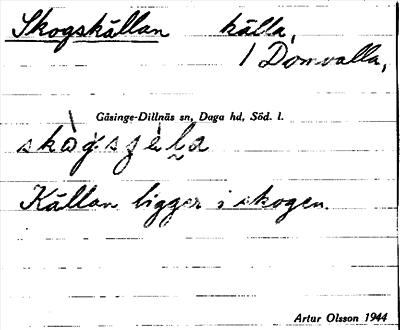 Skogskällan källa,
/ Domvalla,
Gåsinge-Dillnäs sn, Daga hd, Söd. l.
Källan ligger i skogen.
Artur Olsson 1944